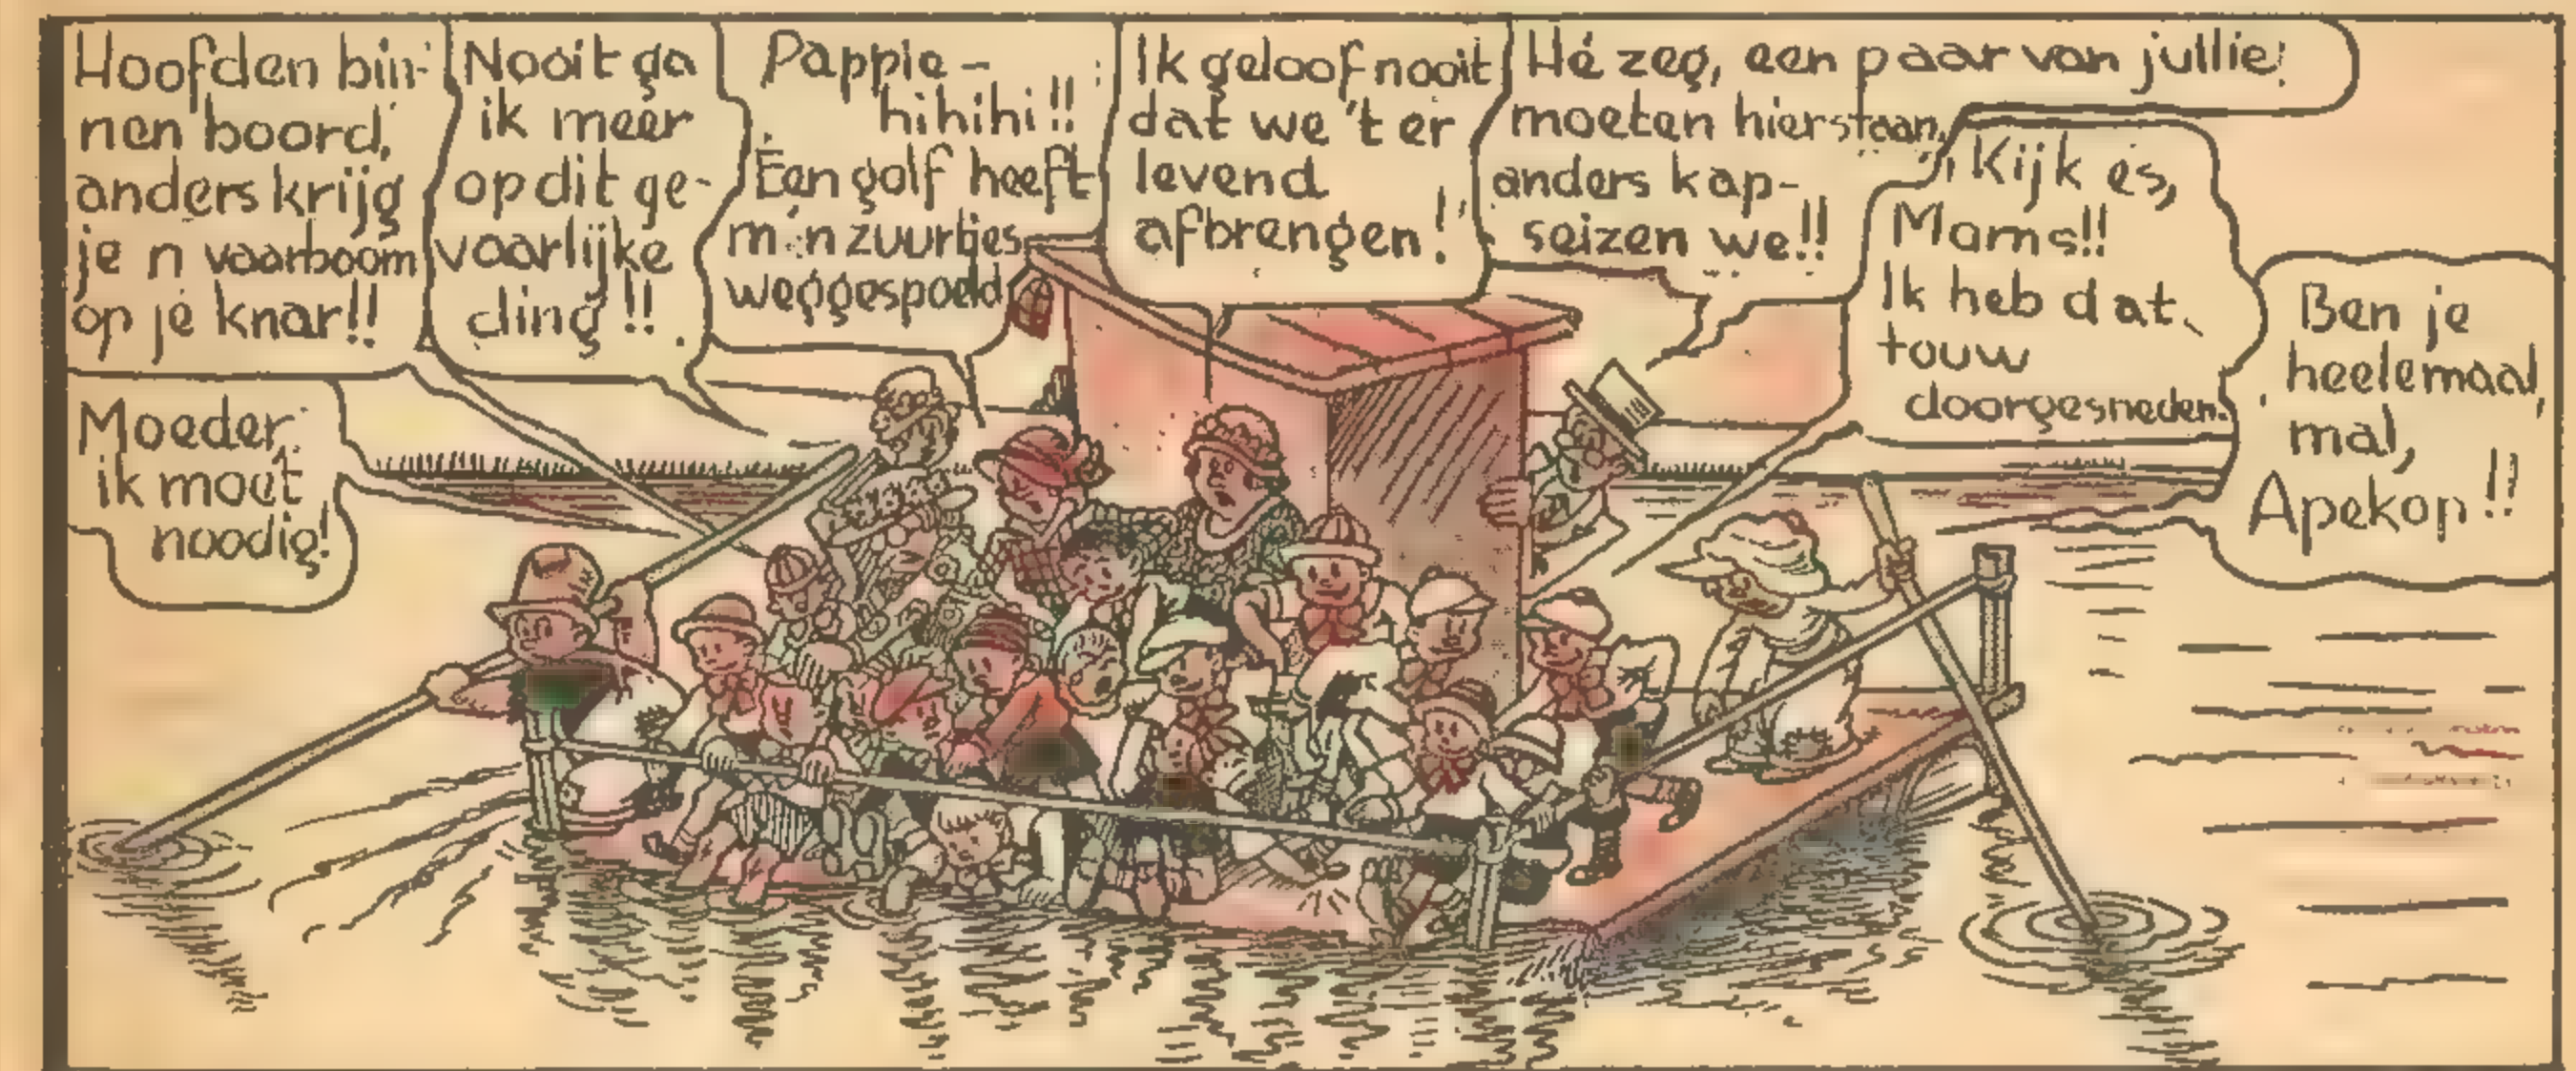 Hoofden bin-
nen boord,
anders krijg
je 'n vaarboom
op je knar!!
Moeder
ik moet
noodig!
Nooit ga
ik meer
op dit ge-
vaarlijke
ding!!
Pappie -
hihihi!!
Een golf heeft
m'n zuurtjes
weggespoeld
Ik geloof nooit
dat we 't er
levend
afbrengen!
Hé zeg, een paar van jullie
moeten hier staan,
anders kap-
seizen we!!
Kijk es,
Moms!!
Ik heb dat
touw
doorgesneden.
Ben je
heelemaal
mal,
Apekop!!